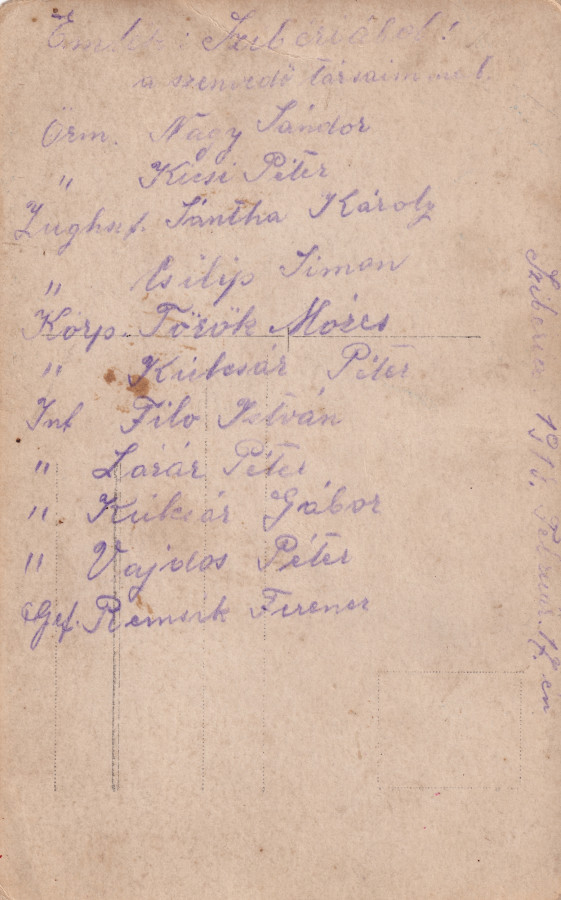 Emlék Szibériából!
a szenvedő társaimmal.
Örm. Nagy Sándor
" Kicsi Péter
Zughsf. Sántha Károly
" Csilip Simon
Korp. Török Mózes
" Kulcsár Péter
Inf Filo István
" Lázár Péter
" Kulcsár Gábor
" Vajdos Péter
Gef. Remenk Ferencz
Sziberia Februar. 17. én